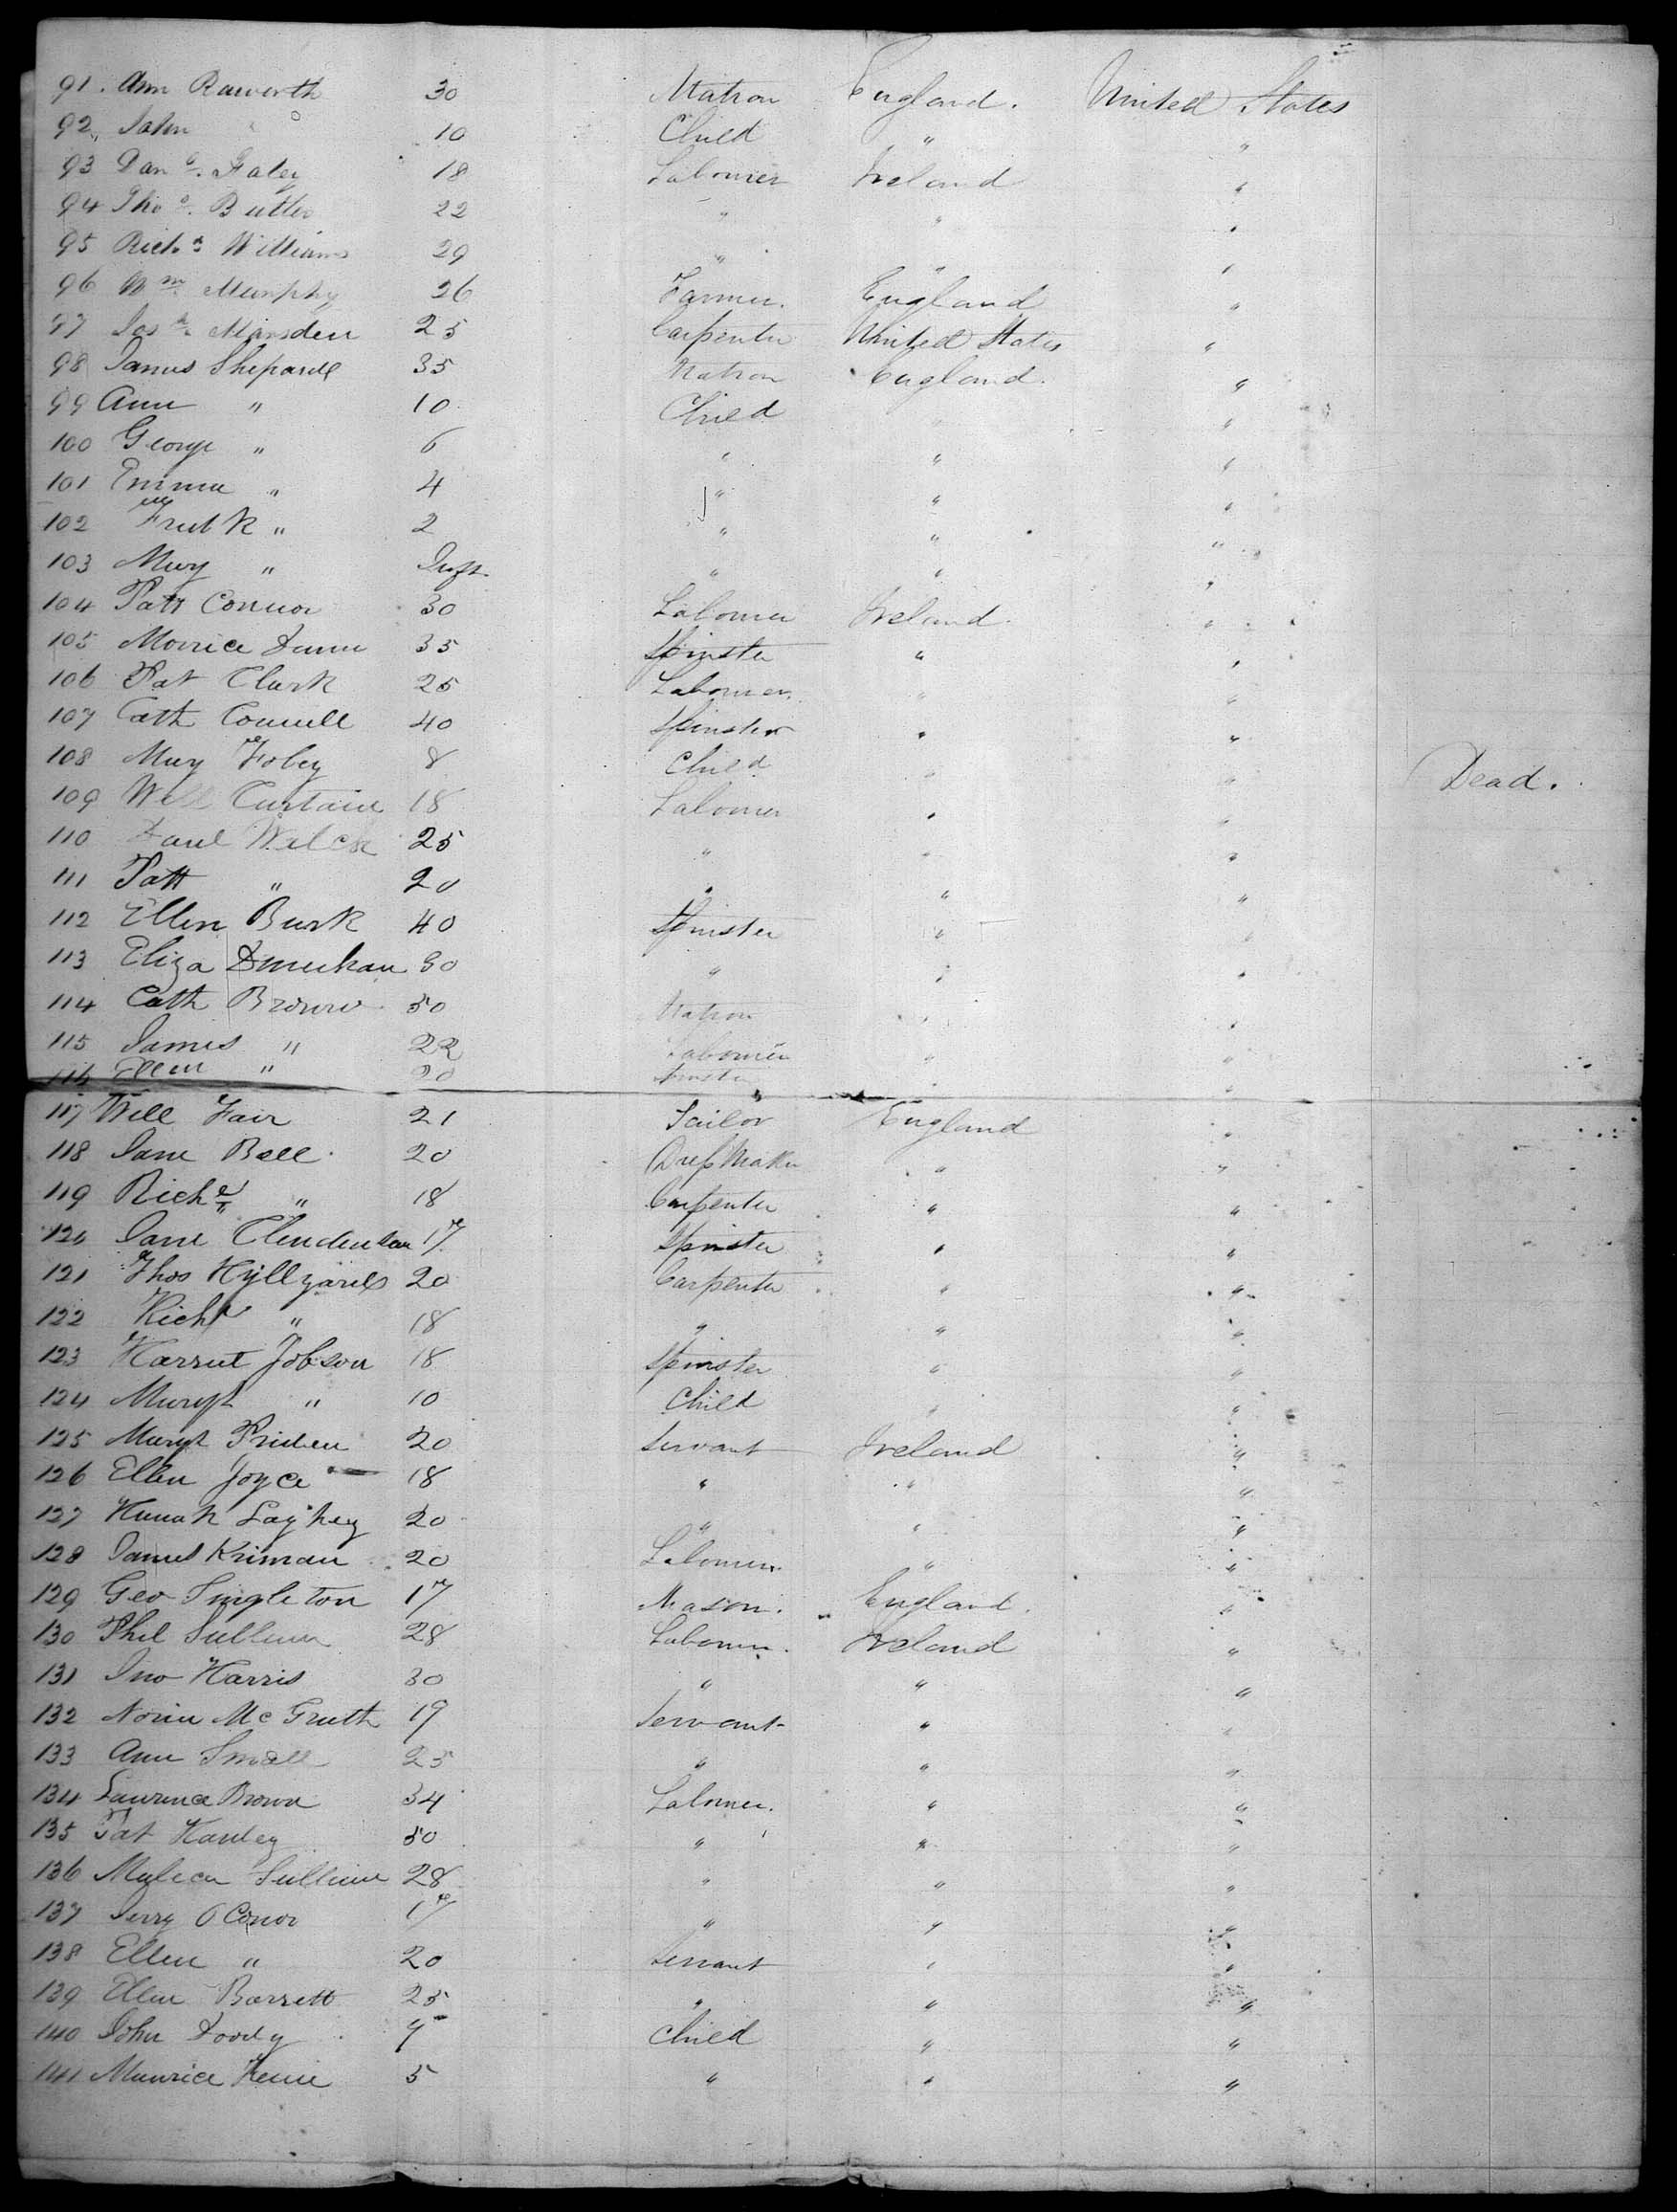 91. Ann Raworth 30 Matron England. United States
92 John " 10 Child " "
93 Danl. Haley 18 Labourer Ireland "
94 Thos. Butler 22 " " "
95 Richd Williams 29 " " "
96 Wm. Murphy 26 Farmer. England "
97 Josh. Marsden 25 Carpenter United States "
98 James Shepard 35 Matron England. "
99 Ann " 10 Child " "
100 George " 6 " " "
101 Emma " 4 " " "
102 Fredk " 2 " " "
103 Mary " Inft. " " "
104 Patt Connor 30 Labourer Ireland "
105 Morrice Dunn 35 Spinster " "
106 Pat Clark 25 Labourer " "
107 Cath Connell 40 Spinster " "
108 Mary Foley 8 Child " " Dead.
109 Will Curtain 18 Labourer " "
110 Danl Walch 25 " " "
111 Patt " 20 " " "
112 Ellen Burk 40 Spinster " "
113 Eliza 30 " " "
114 Cath Brown 50 Matron " "
115 James " 22 Labourer " "
116 Ellen " 20 Spinster " "
117 Will Fair 21 Sailor England "
118 Jane Bell 20 Dress Maker " "
119 Richd " 18 Carpenter " "
120 Jane 17 Spinster " "
121 Thos Hyllyard 20 Carpenter " "
122 Richd " 18 " " "
123 Harriet Jobson 18 Spinster " "
124 Margt " 10 Child " "
125 Margt 20 Servant Ireland "
126 Ellen Joyce 18 " " "
127 Hanah Laghey 20 " " "
128 James Kriman 20 Labourer " "
129 Geo Singleton 17 Mason. England. "
130 Phil Sullivan 28 Labourer. Ireland "
131 Jno Harris 30 " " "
132 McGrath 19 Servant " "
133 Ann Small 25 " " "
134 Laurence Brown 34 Labourer. " "
135 Pat Hanley 50 " " "
136 Sullivan 28 " " "
137 Jerry O Conor 17 " " "
138 Ellen " 20 Servant " "
139 Ellen Barrett 25 " " "
140 John Doody 9 Child " "
141 Maurice 5 " " "